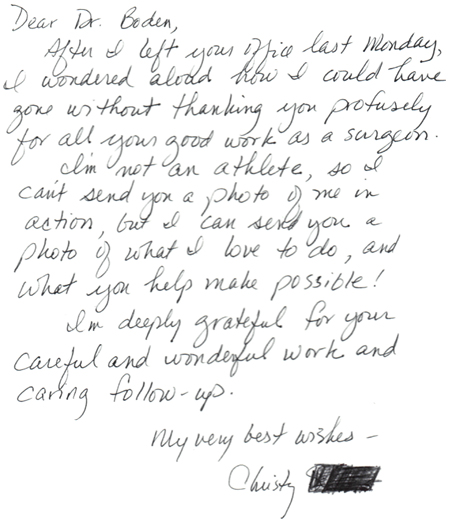 Dear Dr. Boden,
After I left your office last Monday,
I wondered aloud how I could have
gone without thanking you profusely
for all your good work as a surgeon.
I'm not an athlete, so I
can't send you a photo of me in
action, but I can send you a
photo of what I love to do, and
what you help make possible!
I'm deeply grateful for your
careful and wonderful work and
caring follow-up.
My very best wishes -
Christy